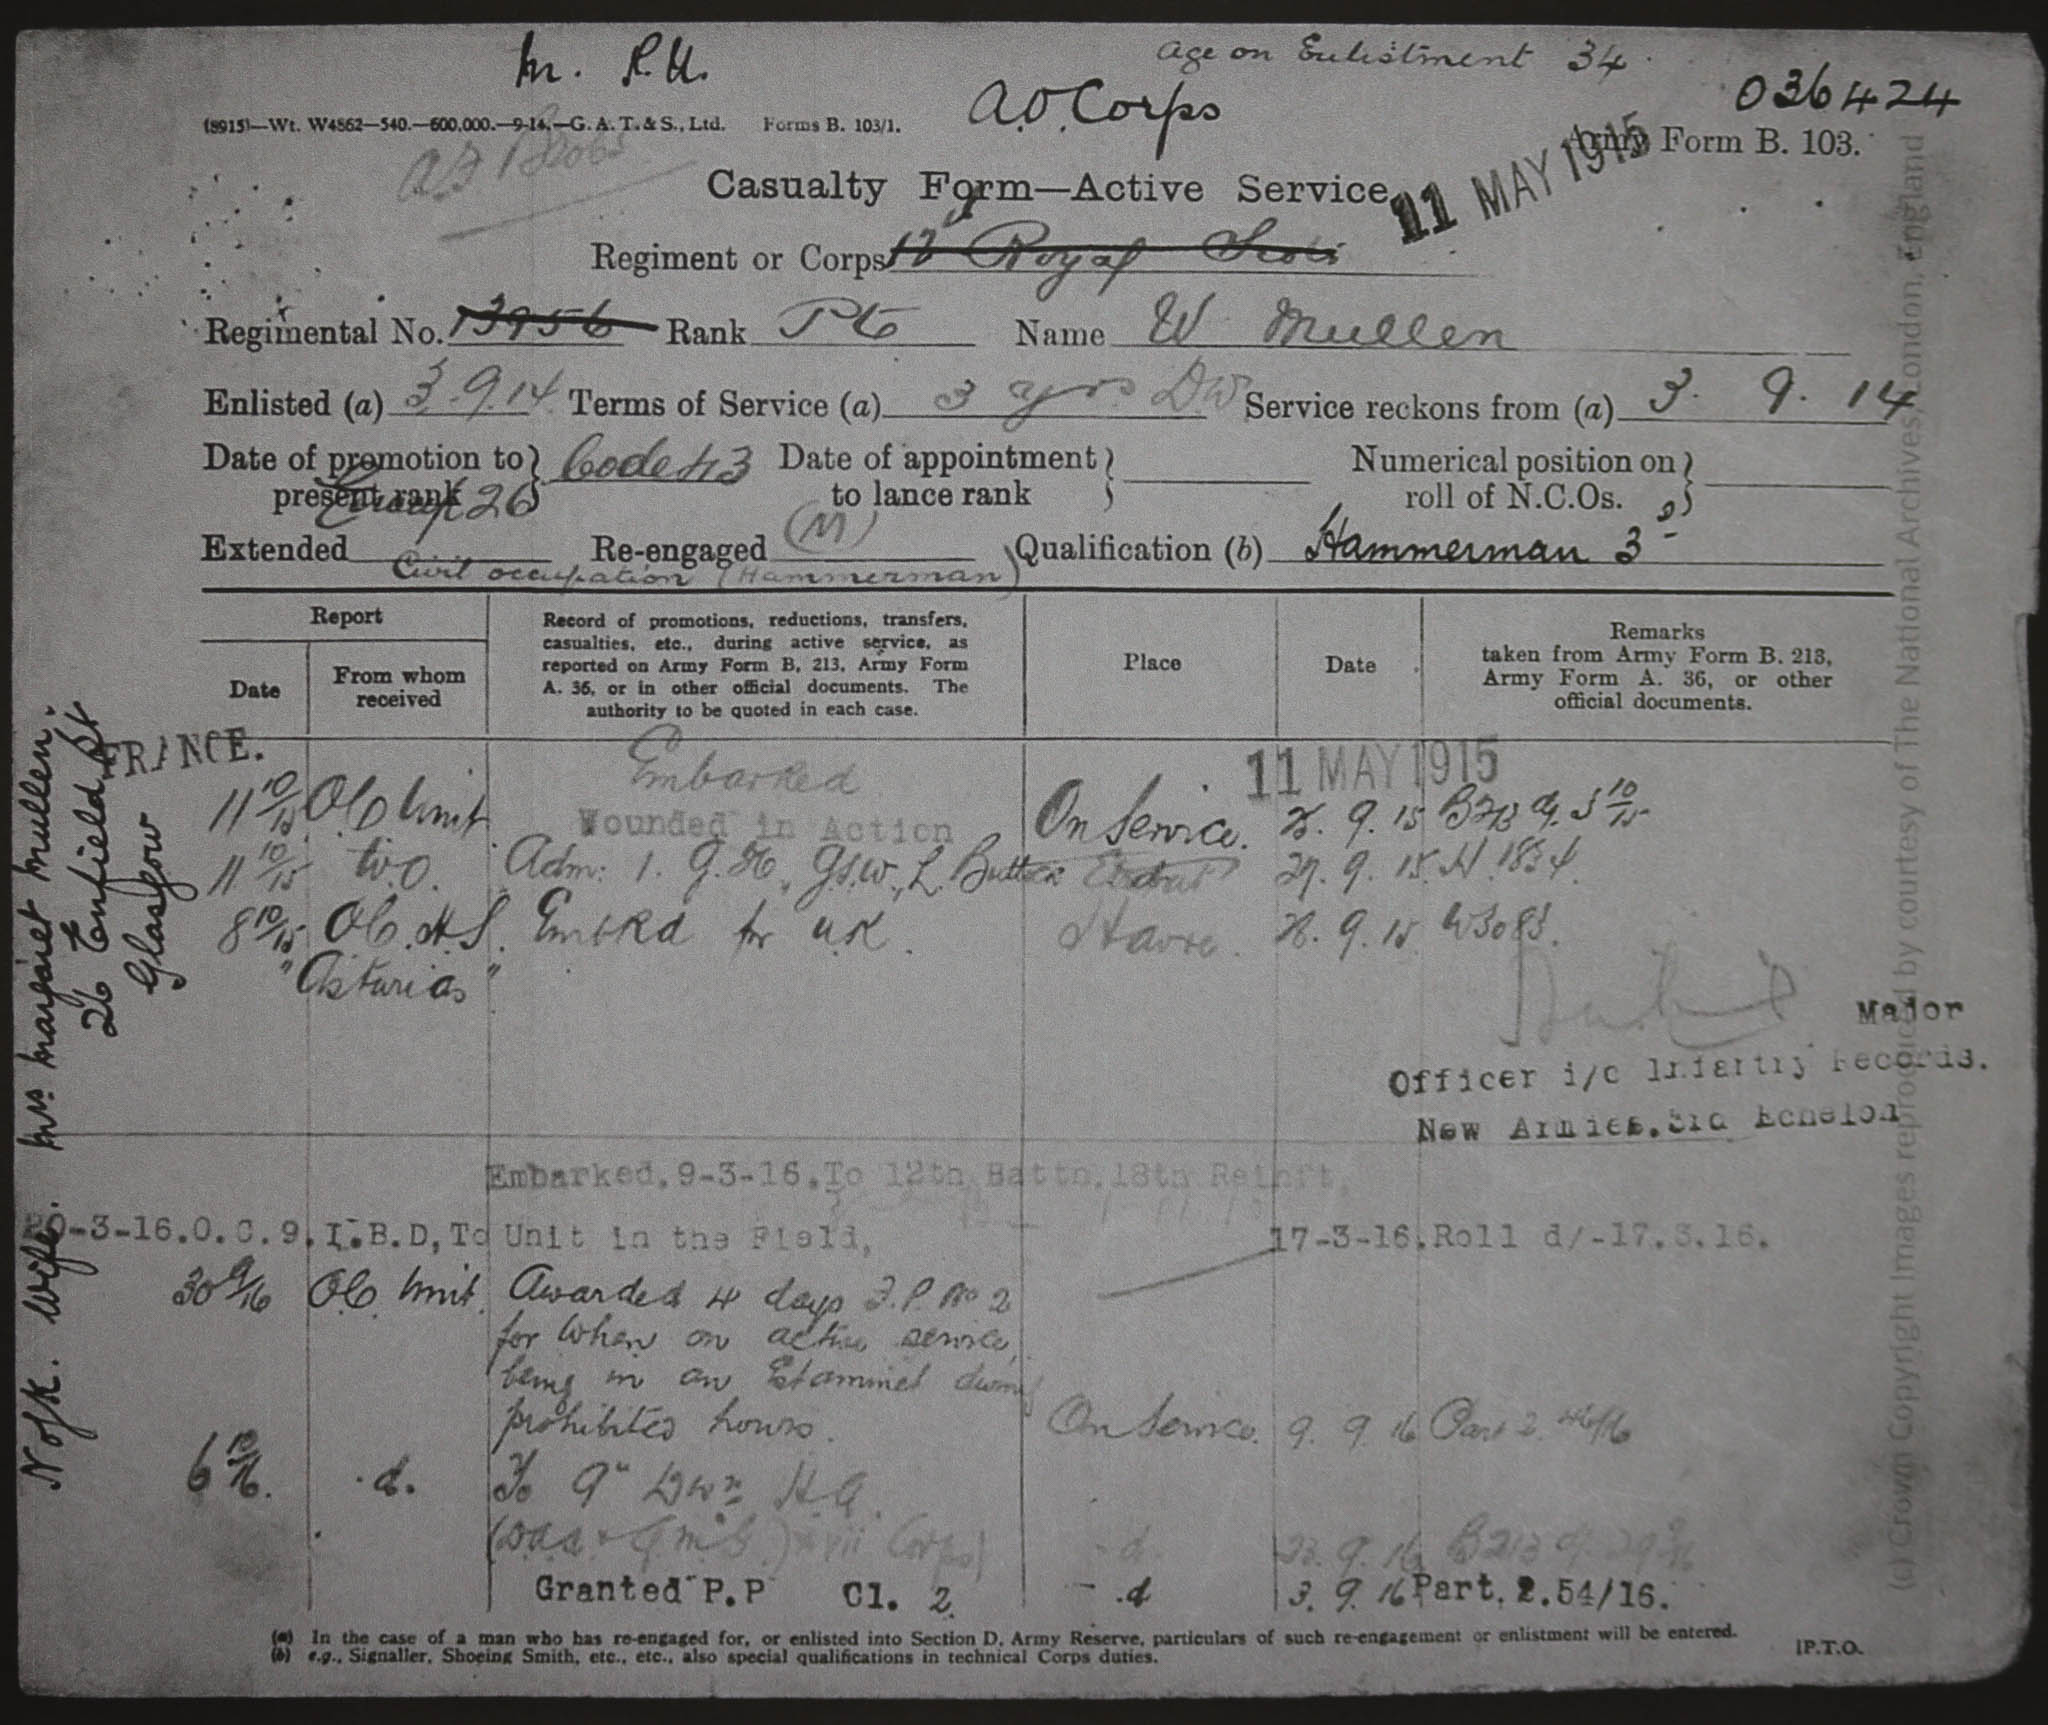 M. R.H.
Age on Enlistment 34
036424
(8915)—Wt. W4862—540.—600,000.—9-14.—G. A. T. & S., Ltd. Forms B. 103/1.
A.O. Corps
Army Form B. 103.
Casualty Form—Active Service
11 MAY 1915
Regiment or Corps 12 Royal Scots
Regimental No. 13956 Rank Pte Name W Mullen
Enlisted (a) 3.9.14 Terms of Service (a) 3 yrs DW Service reckons from (a) 3. 9. 14
Date of promotion to present rank } Code 43 Date of appointment to lance rank } Numerical position on roll of N.C.Os. }
Group 26
Extended Re-engaged (M) Qualification (b) Hammerman 3
Civil occupation (Hammerman)
Report
Date
From whom received
Record of promotions, reductions, transfers,
casualties, etc., during active service, as
reported on Army Form B. 213, Army Form
A. 36, or in other official documents. The
authority to be quoted in each case.
Place
Date
Remarks
taken from Army Form B. 213,
Army Form A. 36, or other
official documents.
FRANCE.
Embarked 11 MAY 1915
11 10/15 OC Unit Wounded in Action On Service. 9. 15 B213 10/15
11 10/15 W.O. Adm: 1. G.H., G.S.W., L. Buttock 9. 15 N. 1834.
8 10/15 OC. H.S. Embkd for U.K. Havre. 9. 15 W3083.
"Asturias"
Major
Officer i/c Infantry Records.
New Armies. 3rd Echelon
Embarked. 9-3-16. To 12th Battn. 18th Reinft.
20-3-16. O. C. 9. I.B.D, To Unit in the Field, 17-3-16. Roll d/-17.3.16.
30 9/16 OC Unit. Awarded 4 days F.P. No 2
for when on active service,
being in an Estaminet during
prohibited hours. On Service. 9. 9. 16 Part 2.
6 10/16. d. To 9th Dwn H.Q.
Corps) d. 23. 9. 16 B213
Granted P.P Cl. 2 d 3. 9. 16 Part. 2.54/16.
(a) In the case of a man who has re-engaged for, or enlisted into Section D, Army Reserve, particulars of such re-engagement or enlistment will be entered.
(b) e.g., Signaller, Shoeing Smith, etc., etc., also special qualifications in technical Corps duties.
[P.T.O.
N of K. Wife. Mrs Margaret Mullen.
26 Enfield St
Glasgow
(c) Crown Copyright Images reproduced by courtesy of The National Archives, London, England